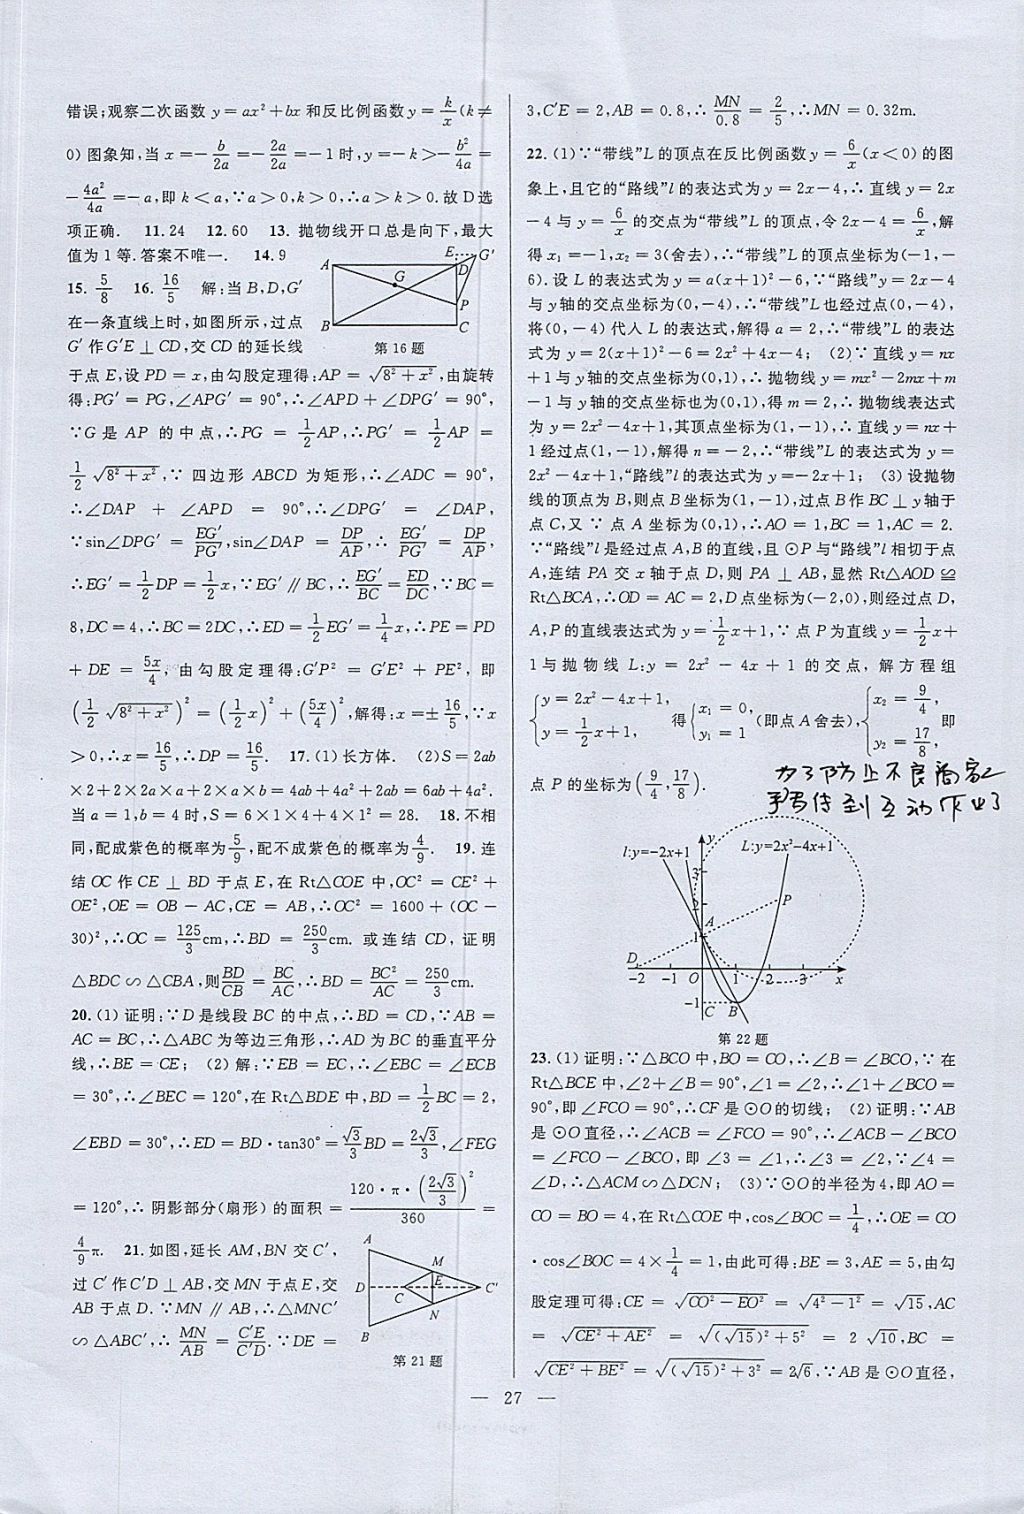 错误;观察二次函数 y=ax²+bx 和反比例函数 y=k/x(k≠
0)图象知,当 x=-b/2a=-2a/2a=-1时,y=-k>-b²/4a=
-4a²/4a=-a,即 k<a,∵a>0,k>0,∴a>k>0.故D选
项正确. 11.24 12.60 13. 抛物线开口总是向下,最大
值为1等.答案不唯一. 14.9
15. 5/8 16. 16/5 解:当B,D,G′
在一条直线上时,如图所示,过点
G′作G′E⊥CD,交CD的延长线
A E G′ D G P B C
第16题
于点E,设PD=x,由勾股定理得:AP=√(8²+x²),由旋转
得:PG′=PG,∠APG′=90°,∴∠APD+∠DPG′=90°,
∵G是AP的中点,∴PG=1/2AP,∴PG′=1/2AP=
1/2√(8²+x²),∵四边形ABCD为矩形,∴∠ADC=90°,
∴∠DAP+∠APD=90°,∴∠DPG′=∠DAP,
∵sin∠DPG′=EG′/PG′,sin∠DAP=DP/AP,∴EG′/PG′=DP/AP,
∴EG′=1/2DP=1/2x,∵EG′∥BC,∴EG′/BC=ED/DC,∵BC=
8,DC=4,∴BC=2DC,∴ED=1/2EG′=1/4x,∴PE=PD
+DE=5x/4,由勾股定理得:G′P²=G′E²+PE²,即
(1/2√(8²+x²))²=(1/2x)²+(5x/4)²,解得:x=±16/5,∵x
>0,∴x=16/5,∴DP=16/5. 17.(1)长方体. (2)S=2ab
×2+2×2a×a+2×a×b=4ab+4a²+2ab=6ab+4a².
当a=1,b=4时,S=6×1×4+4×1²=28. 18.不相
同,配成紫色的概率为5/9,配不成紫色的概率为4/9. 19.连
结OC作CE⊥BD于点E,在Rt△COE中,OC²=CE²+
OE²,OE=OB-AC,CE=AB,∴OC²=1600+(OC-
30)²,∴OC=125/3cm,∴BD=250/3cm. 或连结CD,证明
△BDC∽△CBA,则BD/CB=BC/AC,∴BD=BC²/AC=250/3cm.
20.(1)证明:∵D是线段BC的中点,∴BD=CD,∵AB=
AC=BC,∴△ABC为等边三角形,∴AD为BC的垂直平分
线,∴BE=CE; (2)解:∵EB=EC,∴∠EBC=∠ECB
=30°,∴∠BEC=120°,在Rt△BDE中,BD=1/2BC=2,
∠EBD=30°,∴ED=BD·tan30°=√3/3BD=2√3/3,∠FEG
=120°,∴阴影部分(扇形)的面积=120·π·(2√3/3)²/360=
4/9π. 21.如图,延长AM,BN交C′,
过C′作C′D⊥AB,交MN于点E,交
AB于点D.∵MN∥AB,∴△MNC′
∽△ABC′,∴MN/AB=C′E/C′D.∵DE=
A M D E C C′ N B
第21题
3,C′E=2,AB=0.8,∴MN/0.8=2/5,∴MN=0.32m.
22.(1)∵“带线”L的顶点在反比例函数y=6/x(x<0)的图
象上,且它的“路线”l的表达式为y=2x-4,∴直线y=2x
-4与y=6/x的交点为“带线”L的顶点,令2x-4=6/x,解
得x₁=-1,x₂=3(舍去),∴“带线”L的顶点坐标为(-1,-
6).设L的表达式为y=a(x+1)²-6,∵“路线”y=2x-4
与y轴的交点坐标为(0,-4),∴“带线”L也经过点(0,-4),
将(0,-4)代入L的表达式,解得a=2,∴“带线”L的表达
式为y=2(x+1)²-6=2x²+4x-4; (2)∵直线y=nx
+1与y轴的交点坐标为(0,1),∴抛物线y=mx²-2mx+m
-1与y轴的交点坐标也为(0,1),得m=2,∴抛物线表达式
为y=2x²-4x+1,其顶点坐标为(1,-1),∴直线y=nx+
1经过点(1,-1),解得n=-2,∴“带线”L的表达式为y=
2x²-4x+1,“路线”l的表达式为y=-2x+1; (3)设抛物
线的顶点为B,则点B坐标为(1,-1),过点B作BC⊥y轴于
点C,又∵点A坐标为(0,1),∴AO=1,BC=1,AC=2.
∵“路线”l是经过点A,B的直线,且⊙P与“路线”l相切于点
A,连结PA交x轴于点D,则PA⊥AB,显然Rt△AOD≌
Rt△BCA,∴OD=AC=2,D点坐标为(-2,0),则经过点D,
A,P的直线表达式为y=1/2x+1,∵点P为直线y=1/2x+
1与抛物线L:y=2x²-4x+1的交点,解方程组
{y=2x²-4x+1, y=1/2x+1, 得{x₁=0, y₁=1 (即点A舍去),{x₂=9/4, y₂=17/8, 即
点P的坐标为(9/4,17/8).
为了防止不良商家
手写传到互动作业了
l:y=-2x+1 y L:y=2x²-4x+1
3 2 A P 1
D -2 -1 O 1 2 3 x
-1 C B
第22题
23.(1)证明:∵△BCO中,BO=CO,∴∠B=∠BCO,∵在
Rt△BCE中,∠2+∠B=90°,∠1=∠2,∴∠1+∠BCO=
90°,即∠FCO=90°,∴CF是⊙O的切线; (2)证明:∵AB
是⊙O直径,∴∠ACB=∠FCO=90°,∴∠ACB-∠BCO
=∠FCO-∠BCO,即∠3=∠1,∴∠3=∠2,∵∠4=
∠D,∴△ACM∽△DCN; (3)∵⊙O的半径为4,即AO=
CO=BO=4,在Rt△COE中,cos∠BOC=1/4,∴OE=CO
·cos∠BOC=4×1/4=1,由此可得:BE=3,AE=5,由勾
股定理可得:CE=√(CO²-EO²)=√(4²-1²)=√15,AC
=√(CE²+AE²)=√((√15)²+5²)=2√10,BC=
√(CE²+BE²)=√((√15)²+3²)=2√6,∵AB是⊙O直径,
— 27 —